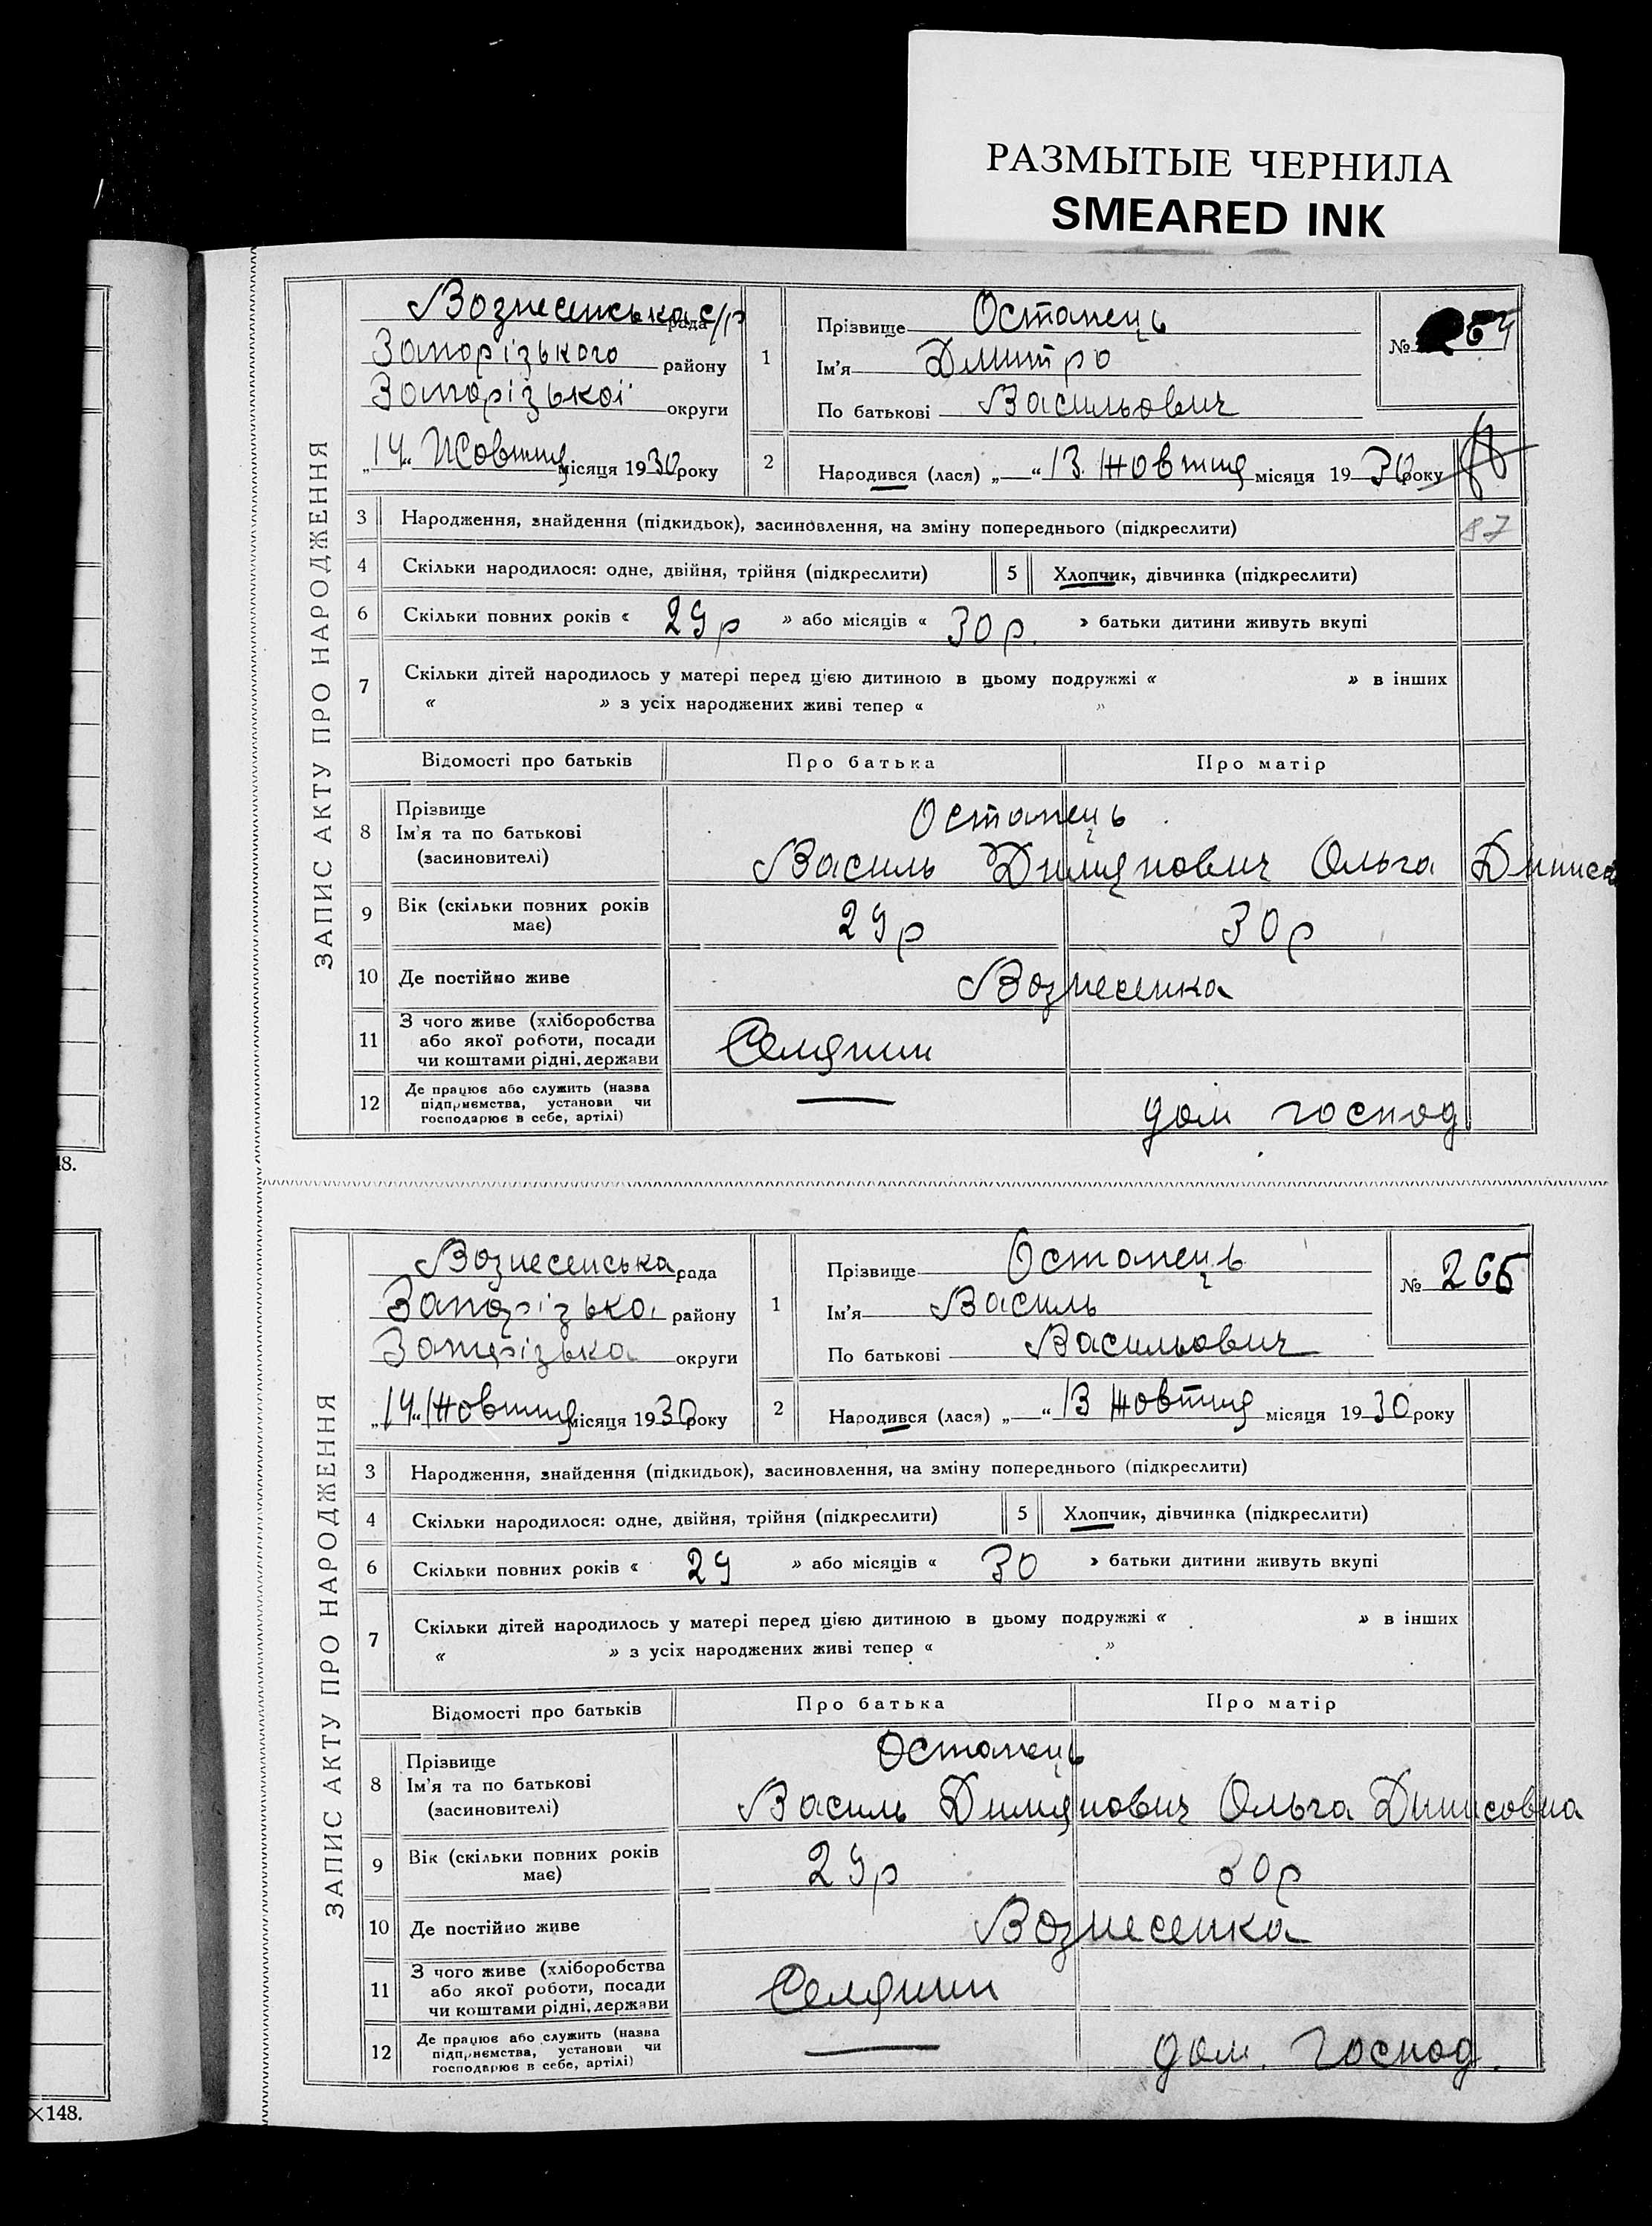 РАЗМЫТЫЕ ЧЕРНИЛА
SMEARED INK
ЗАПИС АКТУ ПРО НАРОДЖЕННЯ
Вознесенська с/р рада
Запорізького району
Запорізької округи
„14“ Жовтня місяця 1930 року
1
Прізвище Останець
Ім'я Дмитро
По батькові Васильович
№ 264
2
Народився (лася) „ “ 13 Жовтня місяця 1930 року
3 Народження, знайдення (підкидьок), засиновлення, на зміну попереднього (підкреслити)
87
4 Скільки народилося: одне, двійня, трійня (підкреслити) 5 Хлопчик, дівчинка (підкреслити)
6 Скільки повних років « 29 р » або місяців « 30 р. » батьки дитини живуть вкупі
7 Скільки дітей народилось у матері перед цією дитиною в цьому подружжі « » в інших
« » з усіх народжених живі тепер « »
Відомості про батьків Про батька Про матір
8 Прізвище
Ім'я та по батькові
(засиновителі)
Останець
Василь Димянович Ольга Динисо
9 Вік (скільки повних років має) 29 р 30 р
10 Де постійно живе Вознесенка
11 З чого живе (хліборобства
або якої роботи, посади
чи коштами рідні, держави
Селянин
12 Де працює або служить (назва
підприємства, установи чи
господарює в себе, артілі)
— дом господ
18.
ЗАПИС АКТУ ПРО НАРОДЖЕННЯ
Вознесенська рада
Запорізька району
Запорізька округи
„14“ Жовтня місяця 1930 року
1
Прізвище Останець
Ім'я Василь
По батькові Васильович
№ 265
2
Народився (лася) „ “ 13 Жовтня місяця 1930 року
3 Народження, знайдення (підкидьок), засиновлення, на зміну попереднього (підкреслити)
4 Скільки народилося: одне, двійня, трійня (підкреслити) 5 Хлопчик, дівчинка (підкреслити)
6 Скільки повних років « 29 » або місяців « 30 » батьки дитини живуть вкупі
7 Скільки дітей народилось у матері перед цією дитиною в цьому подружжі « » в інших
« » з усіх народжених живі тепер « »
Відомості про батьків Про батька Про матір
8 Прізвище
Ім'я та по батькові
(засиновителі)
Останець
Василь Димянович Ольга Динисовна
9 Вік (скільки повних років має) 29 р 30 р
10 Де постійно живе Вознесенка
11 З чого живе (хліборобства
або якої роботи, посади
чи коштами рідні, держави
Селянин
12 Де працює або служить (назва
підприємства, установи чи
господарює в себе, артілі)
— дом. господ.
×148.